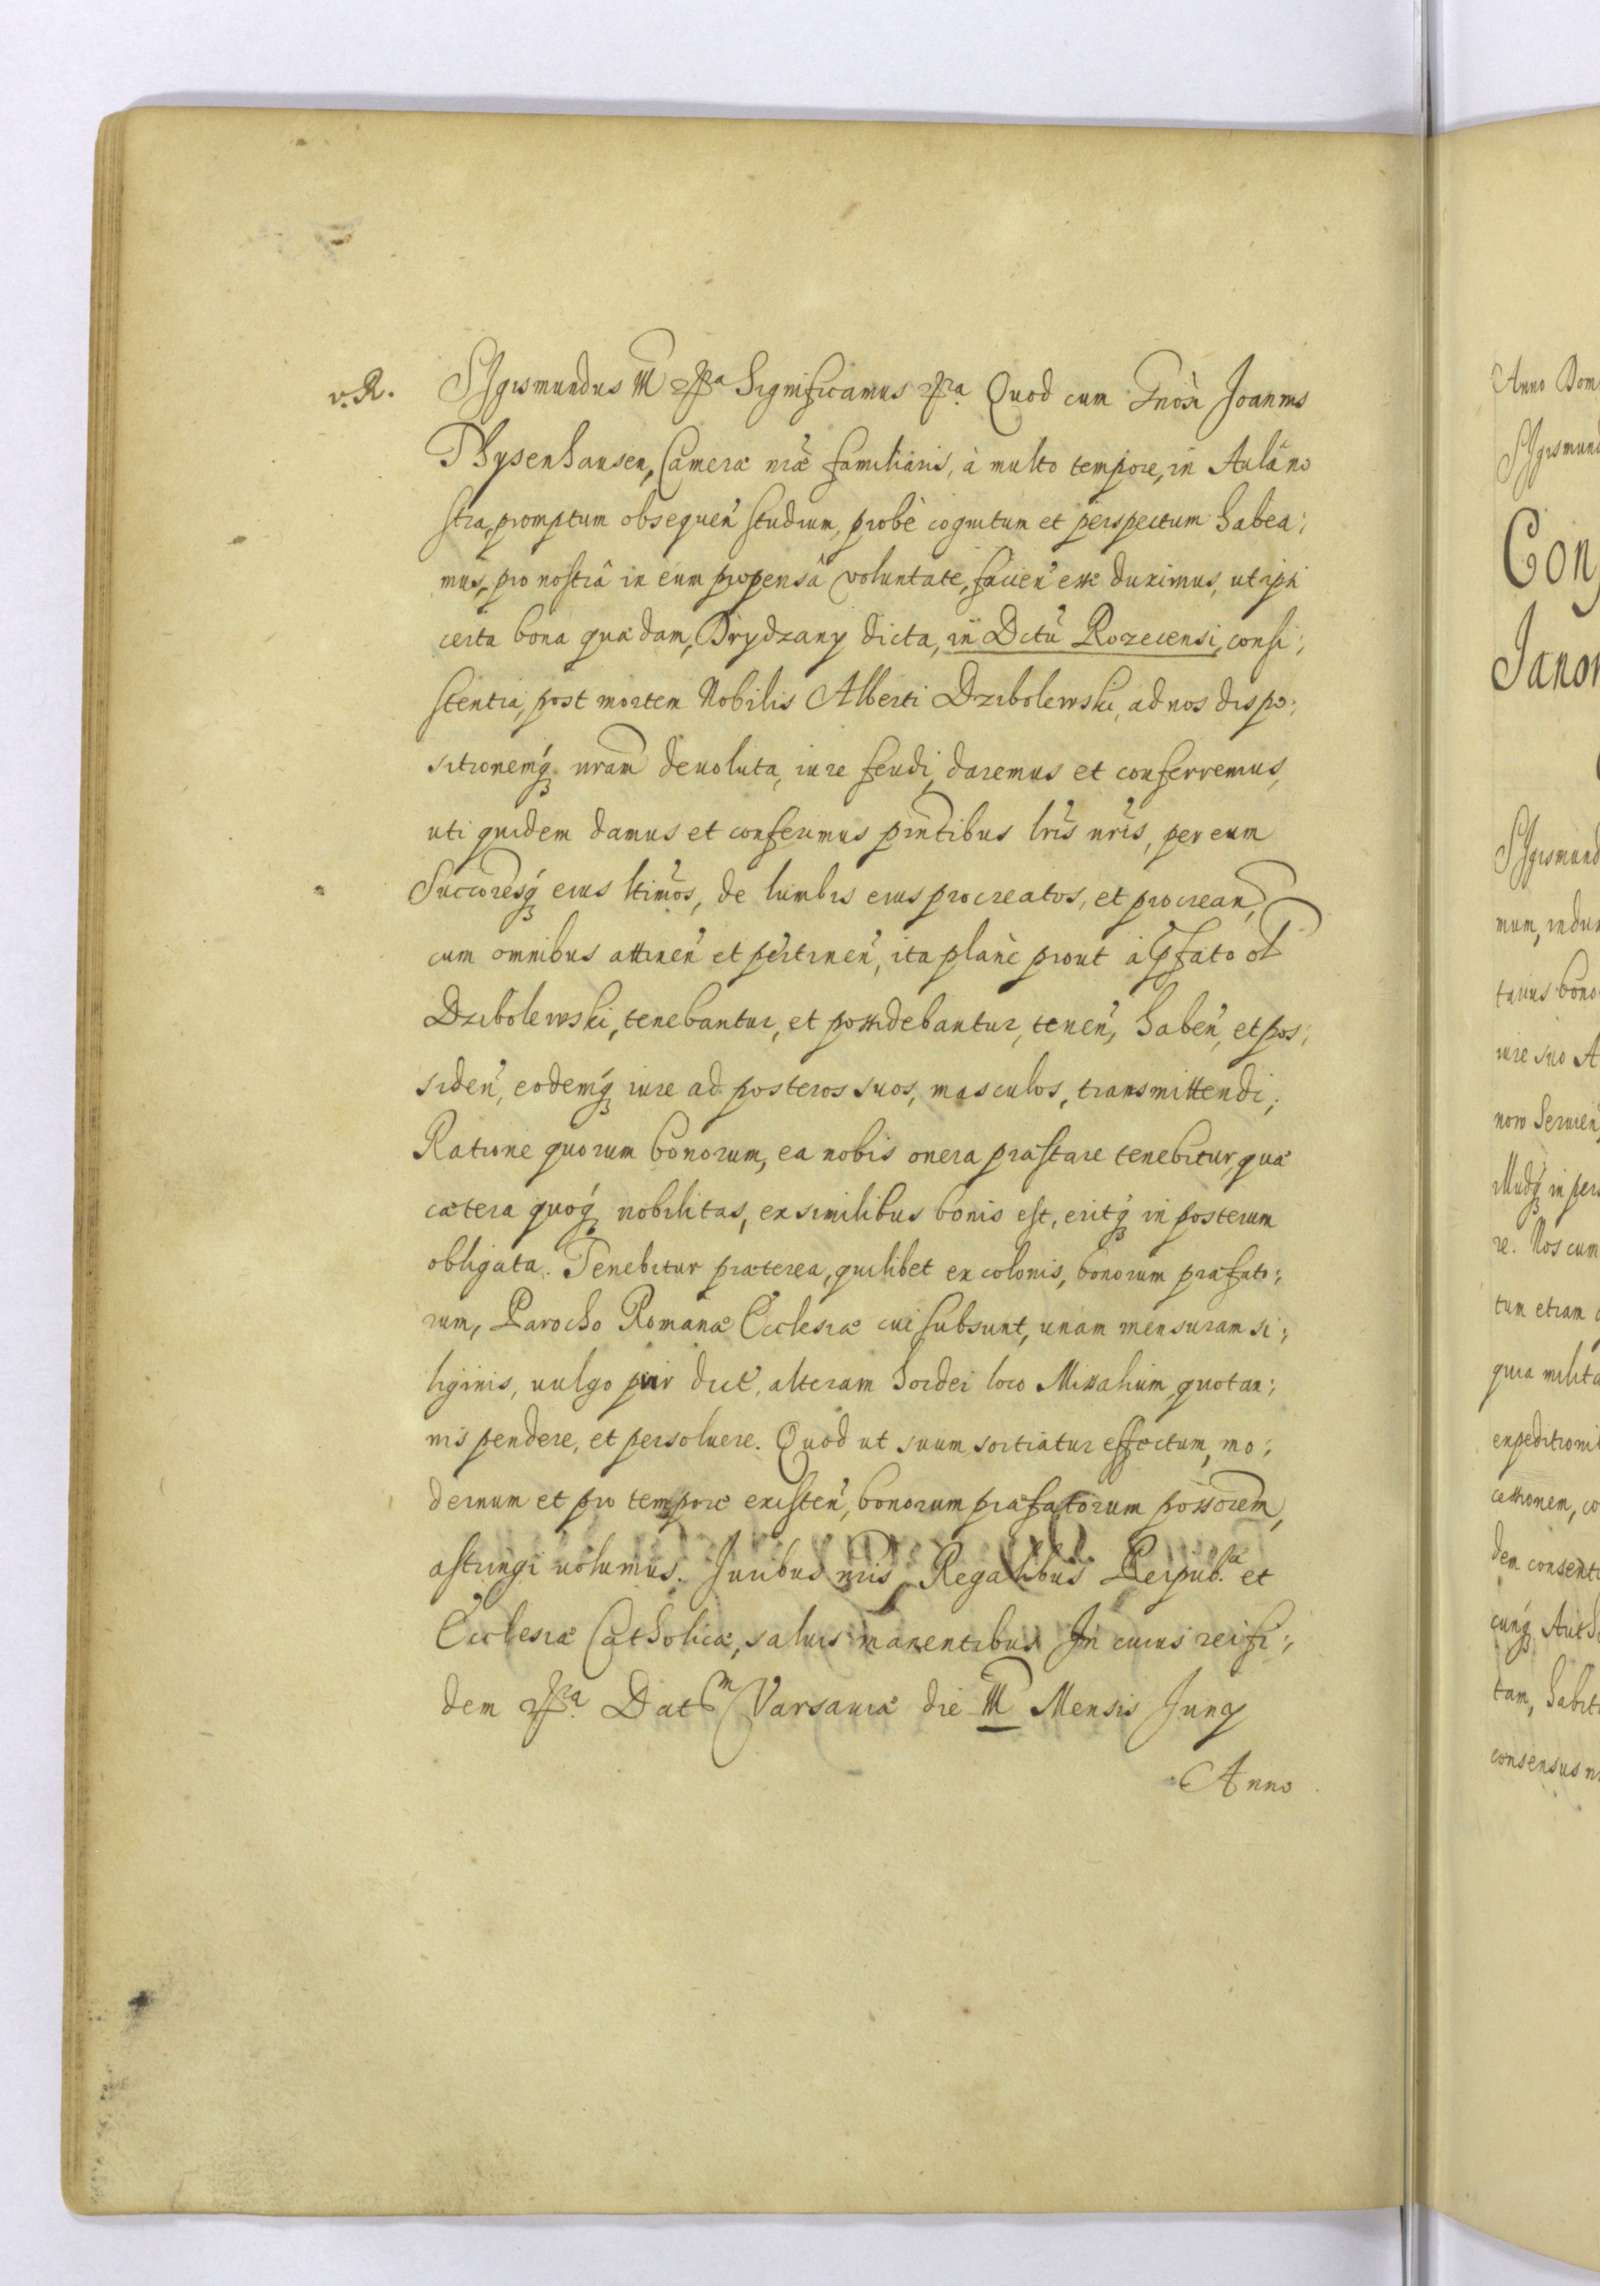 v. R.
Sigismundus III etca Significamus etca. Quod cum Gnosi Joannis
Thysenhausen, Camerae nrae familiaris, à multo tempore, in Aulâ no
stra, promptum obsequen studium, probè cognitum et perspectum habea:,
mus, pro nostrâ in eum propensâ voluntate, facien esse duximus, ut ipsi
certa bona quaedam, Brydzany dicta, in Dctu Rozecensi, consi:,
stentia, post mortem Nobilis Alberti Dzibolewski, ad nos dispo:,
sitionemq nram devoluta, iure feudi, daremus et conferremus,
uti quidem damus et conferimus pntibus lris nris, per eum
Succoresq eius ltimos, de lumbis eius procreatos, et procrean,
cum omnibus attinen et pertinen, ita planè prout à pfato ol
Dzibolewski, tenebantur, et possidebantur, tenen, haben, et pos:,
siden, eodemq iure ad posteros suos, masculos, transmittendi;
Ratione quorum bonorum, ea nobis onera praestare tenebitur, quae
caetera quoq nobilitas, ex similibus bonis est, eritq in posterum
obligata. Tenebitur praeterea, quilibet ex colonis, bonorum praefato:,
rum, Parocho Romanae Ecclesiae cui subsunt, unam mensuram si:,
liginis, uulgo pur dict, alteram hordei loco Missalium, quotan:,
nis pendere, et persoluere. Quod ut suum sortiatur effectum, mo:,
dernum et pro tempore existen, bonorum praefatorum possorem,
astringi uolumus. Juribus nris Regalibus Reipub. et
Ecclesiae Catholicae, saluis manentibus In cuius rei fi:,
dem etca. Datm Varsauiae die III Mensis Juny
Anno
Anno Dom
Sigismund
Con
Janon
Sigismund
mum, indu
tarius bono
iure suo A
noro Seruien
illudq in per
re. Nos cum
tum etiam
quia milita
expeditioni
cessionem, co
dem consenti
cunq Autho
tam, habit
consensus n